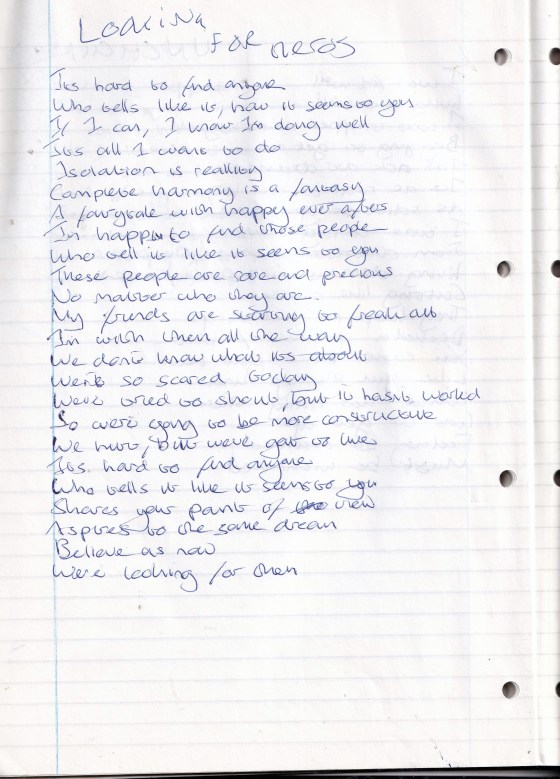 LOOKING
FOR HEROS
Its hard to find anyone
Who tells like it, how it seems to you
If I can, I know Im doing well
Its all I want to do
Isolation is reality
Complete harmony is a fantasy
A fairytale with happy ever afters
Im happy to find those people
Who tell it like it seems to you
These people are rare and precious
No matter who they are.
My friends are starting to freak out
Im with them all the way
We dont know what its about
Were so scared today
Weve tried to shout, but it hasnt worked
So were trying to be more constructive
We hurt, but weve got to live
Its hard to find anyone
Who tells it like it seems to you
Shares your point of view
Aspires to the same dream
Believe as now
We're looking for them